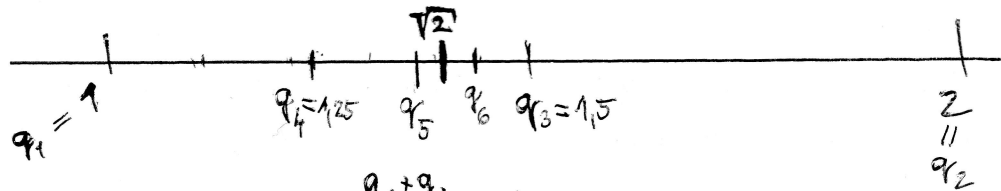 √2
q₁ = 1 q₄=1,25 q₅ q₆ q₃=1,5 2 = q₂